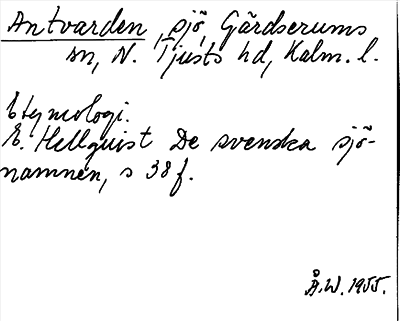 Antvarden, sjö, Gärdserums
sn, N. Tjusts hd, Kalm. l.
Etymologi.
E. Hellquist De svenska sjö-
namnen, s 38 f.
Å.W. 1955.